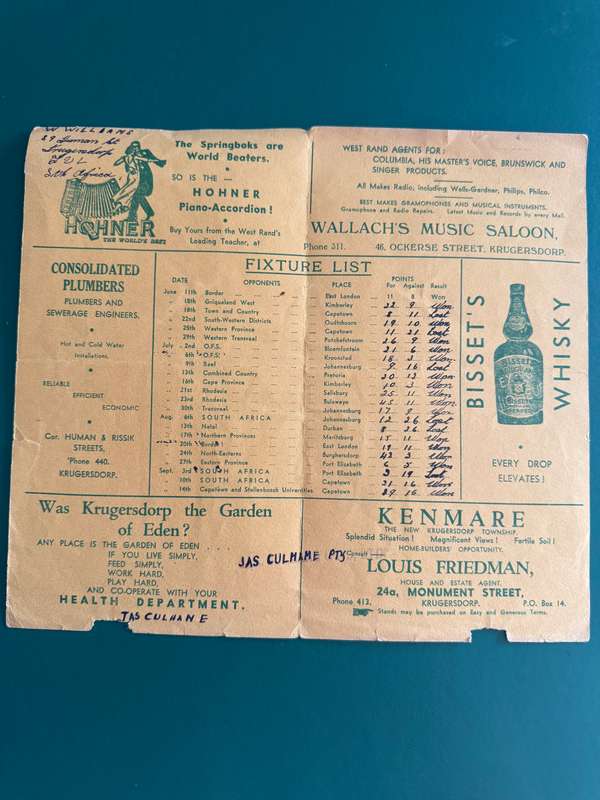 W WILLIAMS
29 Human St
Krugersdorp
Sth Africa
HOHNER
THE WORLD'S BEST
The Springboks are
World Beaters.
SO IS THE —
HOHNER
Piano-Accordion!
Buy Yours from the West Rand's
Leading Teacher, at
WEST RAND AGENTS FOR:
COLUMBIA, HIS MASTER'S VOICE, BRUNSWICK AND
SINGER PRODUCTS.
All Makes Radio, including Wells-Gardner, Philips, Philco.
BEST MAKES GRAMOPHONES AND MUSICAL INSTRUMENTS.
Gramophone and Radio Repairs. Latest Music and Records by every Mail.
WALLACH'S MUSIC SALOON,
Phone 311. 46, OCKERSE STREET, KRUGERSDORP.
CONSOLIDATED
PLUMBERS
PLUMBERS AND
SEWERAGE ENGINEERS.
Hot and Cold Water
Installations.
RELIABLE
EFFICIENT
ECONOMIC
Cor. HUMAN & RISSIK
STREETS,
'Phone 440.
KRUGERSDORP.
FIXTURE LIST
DATE OPPONENTS PLACE POINTS
For Against Result
June 11th Border East London 11 8 Won
„ 15th Griqualand West Kimberley 22 9 Won
„ 18th Town and Country Capetown 8 11 Lost
„ 22nd South-Western Districts Oudtshoorn 19 10 Won
„ 25th Western Province Capetown 11 21 Lost
„ 29th Western Transvaal Potchefstroom 26 9 Won
July 2nd O.F.S. Bloemfontein 21 6 Won
„ 6th O.F.S. Kroonstad 18 3 Won
„ 9th Rand Johannesburg 9 16 Lost
„ 13th Combined Country Pretoria 20 12 Won
„ 16th Cape Province Kimberley 10 3 Won
„ 21st Rhodesia Salisbury 25 11 Won
„ 23rd Rhodesia Bulawayo 45 11 Won
„ 30th Transvaal Johannesburg 17 9 Won
Aug 6th SOUTH AFRICA Johannesburg 12 26 Lost
„ 13th Natal Durban 8 26 Lost
„ 17th Northern Provinces Maritzburg 15 11 Won
„ 20th Border East London 19 11 Won
„ 24th North-Eastern Burghersdorp 42 3 Won
„ 27th Eastern Province Port Elizabeth 6 5 Won
Sept. 3rd SOUTH AFRICA Port Elizabeth 3 19 Lost
„ 10th SOUTH AFRICA Capetown 21 16 Won
„ 14th Capetown and Stellenbosch Universities Capetown 29 16 Won
BISSET'S
WHISKY
EVERY DROP
ELEVATES!
Was Krugersdorp the Garden
of Eden?
ANY PLACE IS THE GARDEN OF EDEN ....
IF YOU LIVE SIMPLY,
FEED SIMPLY,
WORK HARD,
PLAY HARD,
AND CO-OPERATE WITH YOUR
HEALTH DEPARTMENT.
TAS CULHANE
JAS CULHAME PTY
KENMARE
THE NEW KRUGERSDORP TOWNSHIP.
Splendid Situation! Magnificent Views! Fertile Soil!
HOME-BUILDERS' OPPORTUNITY.
Consult —
LOUIS FRIEDMAN,
HOUSE AND ESTATE AGENT.
24a, MONUMENT STREET,
Phone 413. KRUGERSDORP. P.O. Box 14.
Stands may be purchased on Easy and Generous Terms.